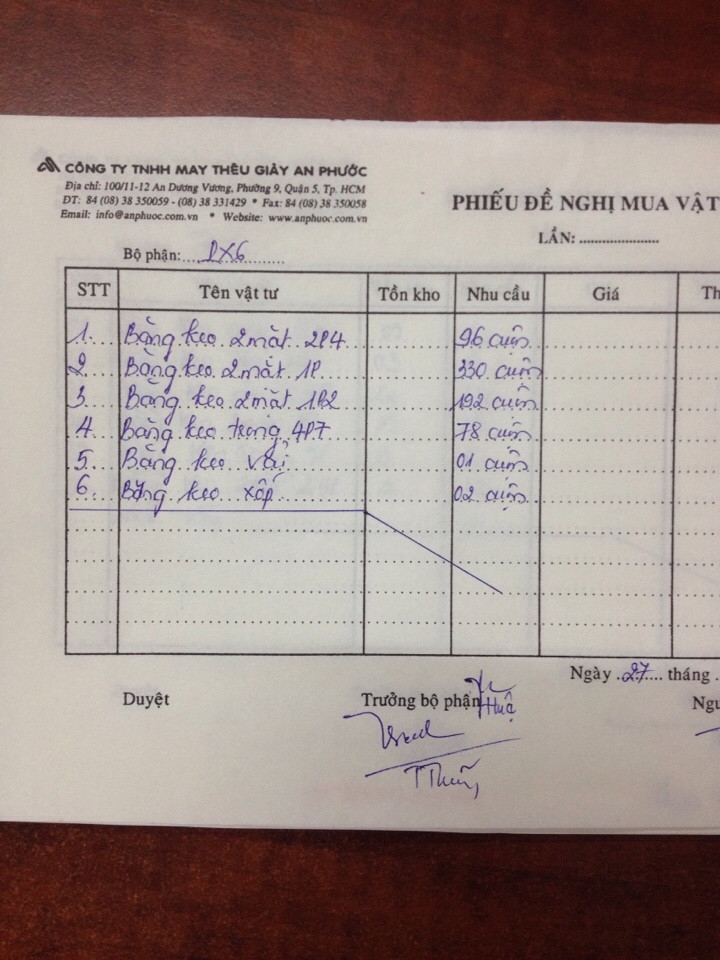 CÔNG TY TNHH MAY THÊU GIÀY AN PHƯỚC
Địa chỉ: 100/11-12 An Dương Vương, Phường 9, Quận 5, Tp. HCM
ĐT: 84 (08) 38 350059 - (08) 38 331429 * Fax: 84 (08) 38 350058
Email: info@anphuoc.com.vn * Website: www.anphuoc.com.vn
PHIẾU ĐỀ NGHỊ MUA VẬT
LẦN: ....................
Bộ phận: PX6
STT Tên vật tư Tồn kho Nhu cầu Giá Th
1. Băng keo 2 mặt 2P4 96 cuộn
2. Băng keo 2 mặt 1P 330 cuộn
3. Băng keo 2 mặt 1P2 192 cuộn
4. Băng keo trong 4P7 78 cuộn
5. Băng keo vải 01 cuộn
6. Băng keo xốp 02 cuộn
Ngày 27 tháng
Duyệt Trưởng bộ phận Ngư
Huệ
T Thủy